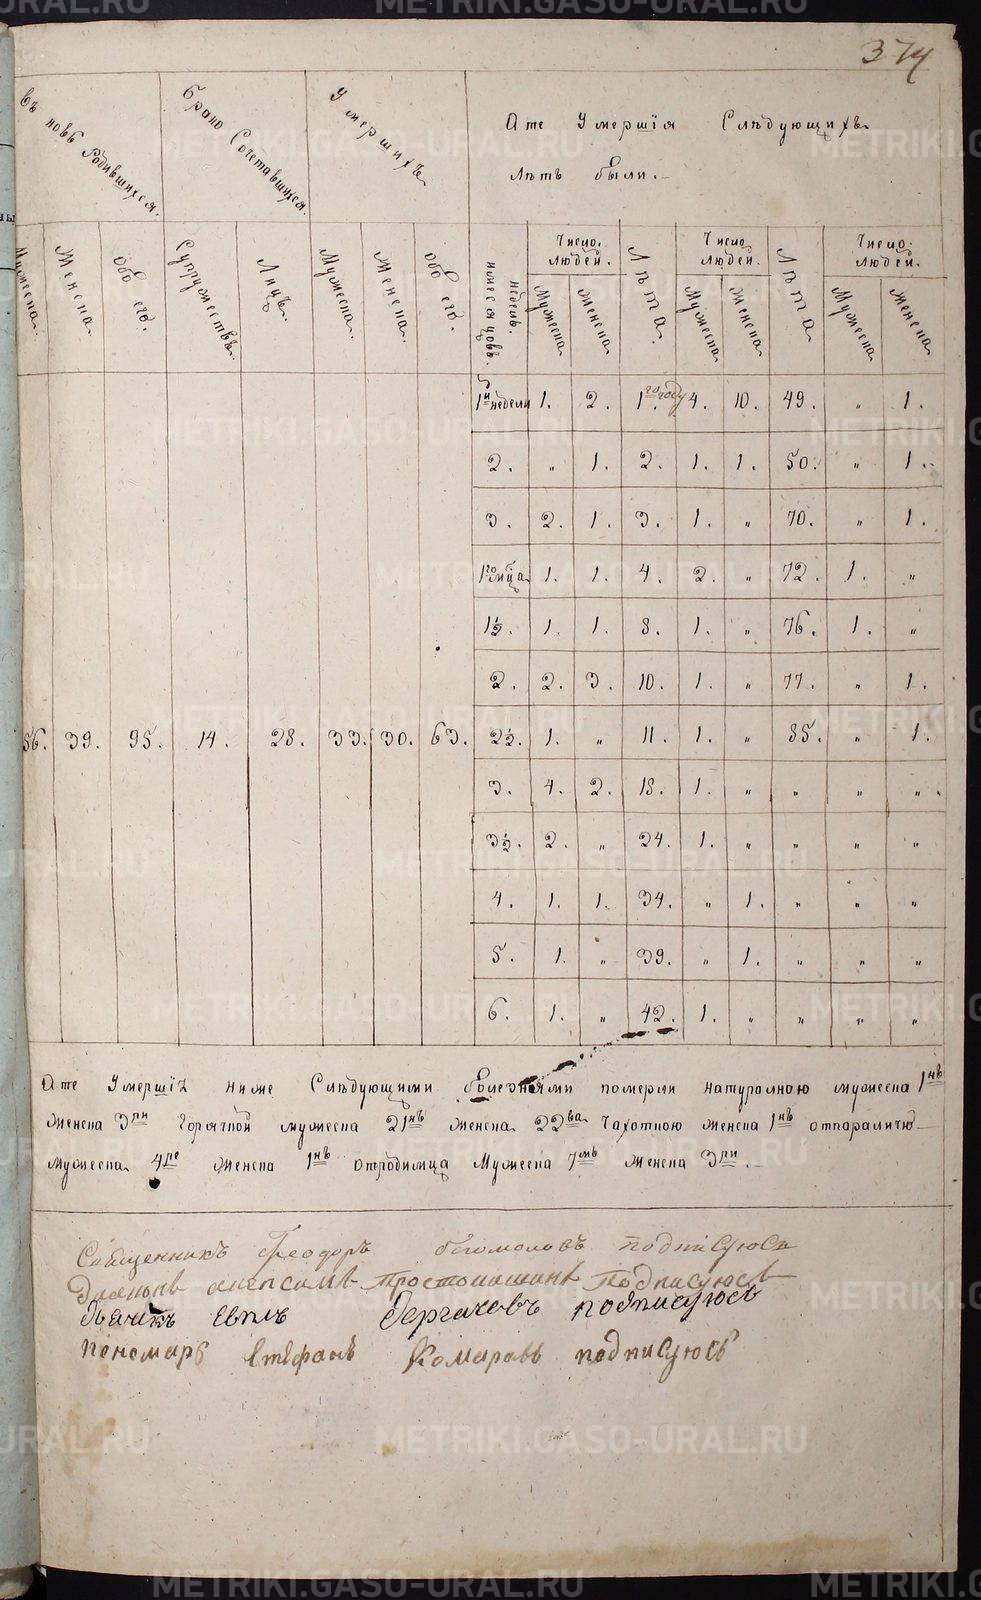 374
въ новѣ Родившихся.
Брако Сочетавшихся.
Умершихъ
А те Умершія Слѣдующихъ
лѣтъ были.
Мужеска. Женска. Обо его. Супружествъ. Лицъ. Мужеска. Женска. Обо его.
недель. и месяцовъ.
Число людей. Лѣта. Число людей. Лѣта Число людей.
Мужеска Женска Мужеска Женска Мужеска Женска
1й недели 1. 2. 1го году 4. 10. 49. „ 1.
2. „ 1. 2. 1. 1. 50. „ 1.
3. 2. 1. 3. 1. „ 70. „ 1.
1го мца 1. 1. 4. 2. „ 72. 1. „
1½. 1. 1. 8. 1. „ 76. 1. „
2. 2. 3. 10. 1. „ 77. „ 1.
56. 39. 95. 14. 28. 33. 30. 63. 2½. 1. „ 11. 1. „ 85. „ 1.
3. 4. 2. 18. 1. „ „ „ „
3½. 2. „ 24. 1. „ „ „ „
4. 1. 1. 34. „ 1. „ „ „
5. 1. „ 39. „ 1. „ „ „
6. 1. „ 42. 1. „ „ „ „
А те Умершіи ниже Слѣдующими болезнями померли натуралною мужеска 1нъ
женска 3ри Горячной мужеска 21нъ женска 22ва Чахотною женска 1нъ отпараличю
мужеска 4ре женска 1нъ отродимца Мужеска 7мь женска 3ри.
Священникъ Феодоръ Богомоловъ подписуюсь
Подписуюсь
Дьячикъ Евплъ Дергачевъ подписуюсь
Пономарь Стефанъ Комаровъ подписуюсь
METRIKI.GASO-URAL.RU